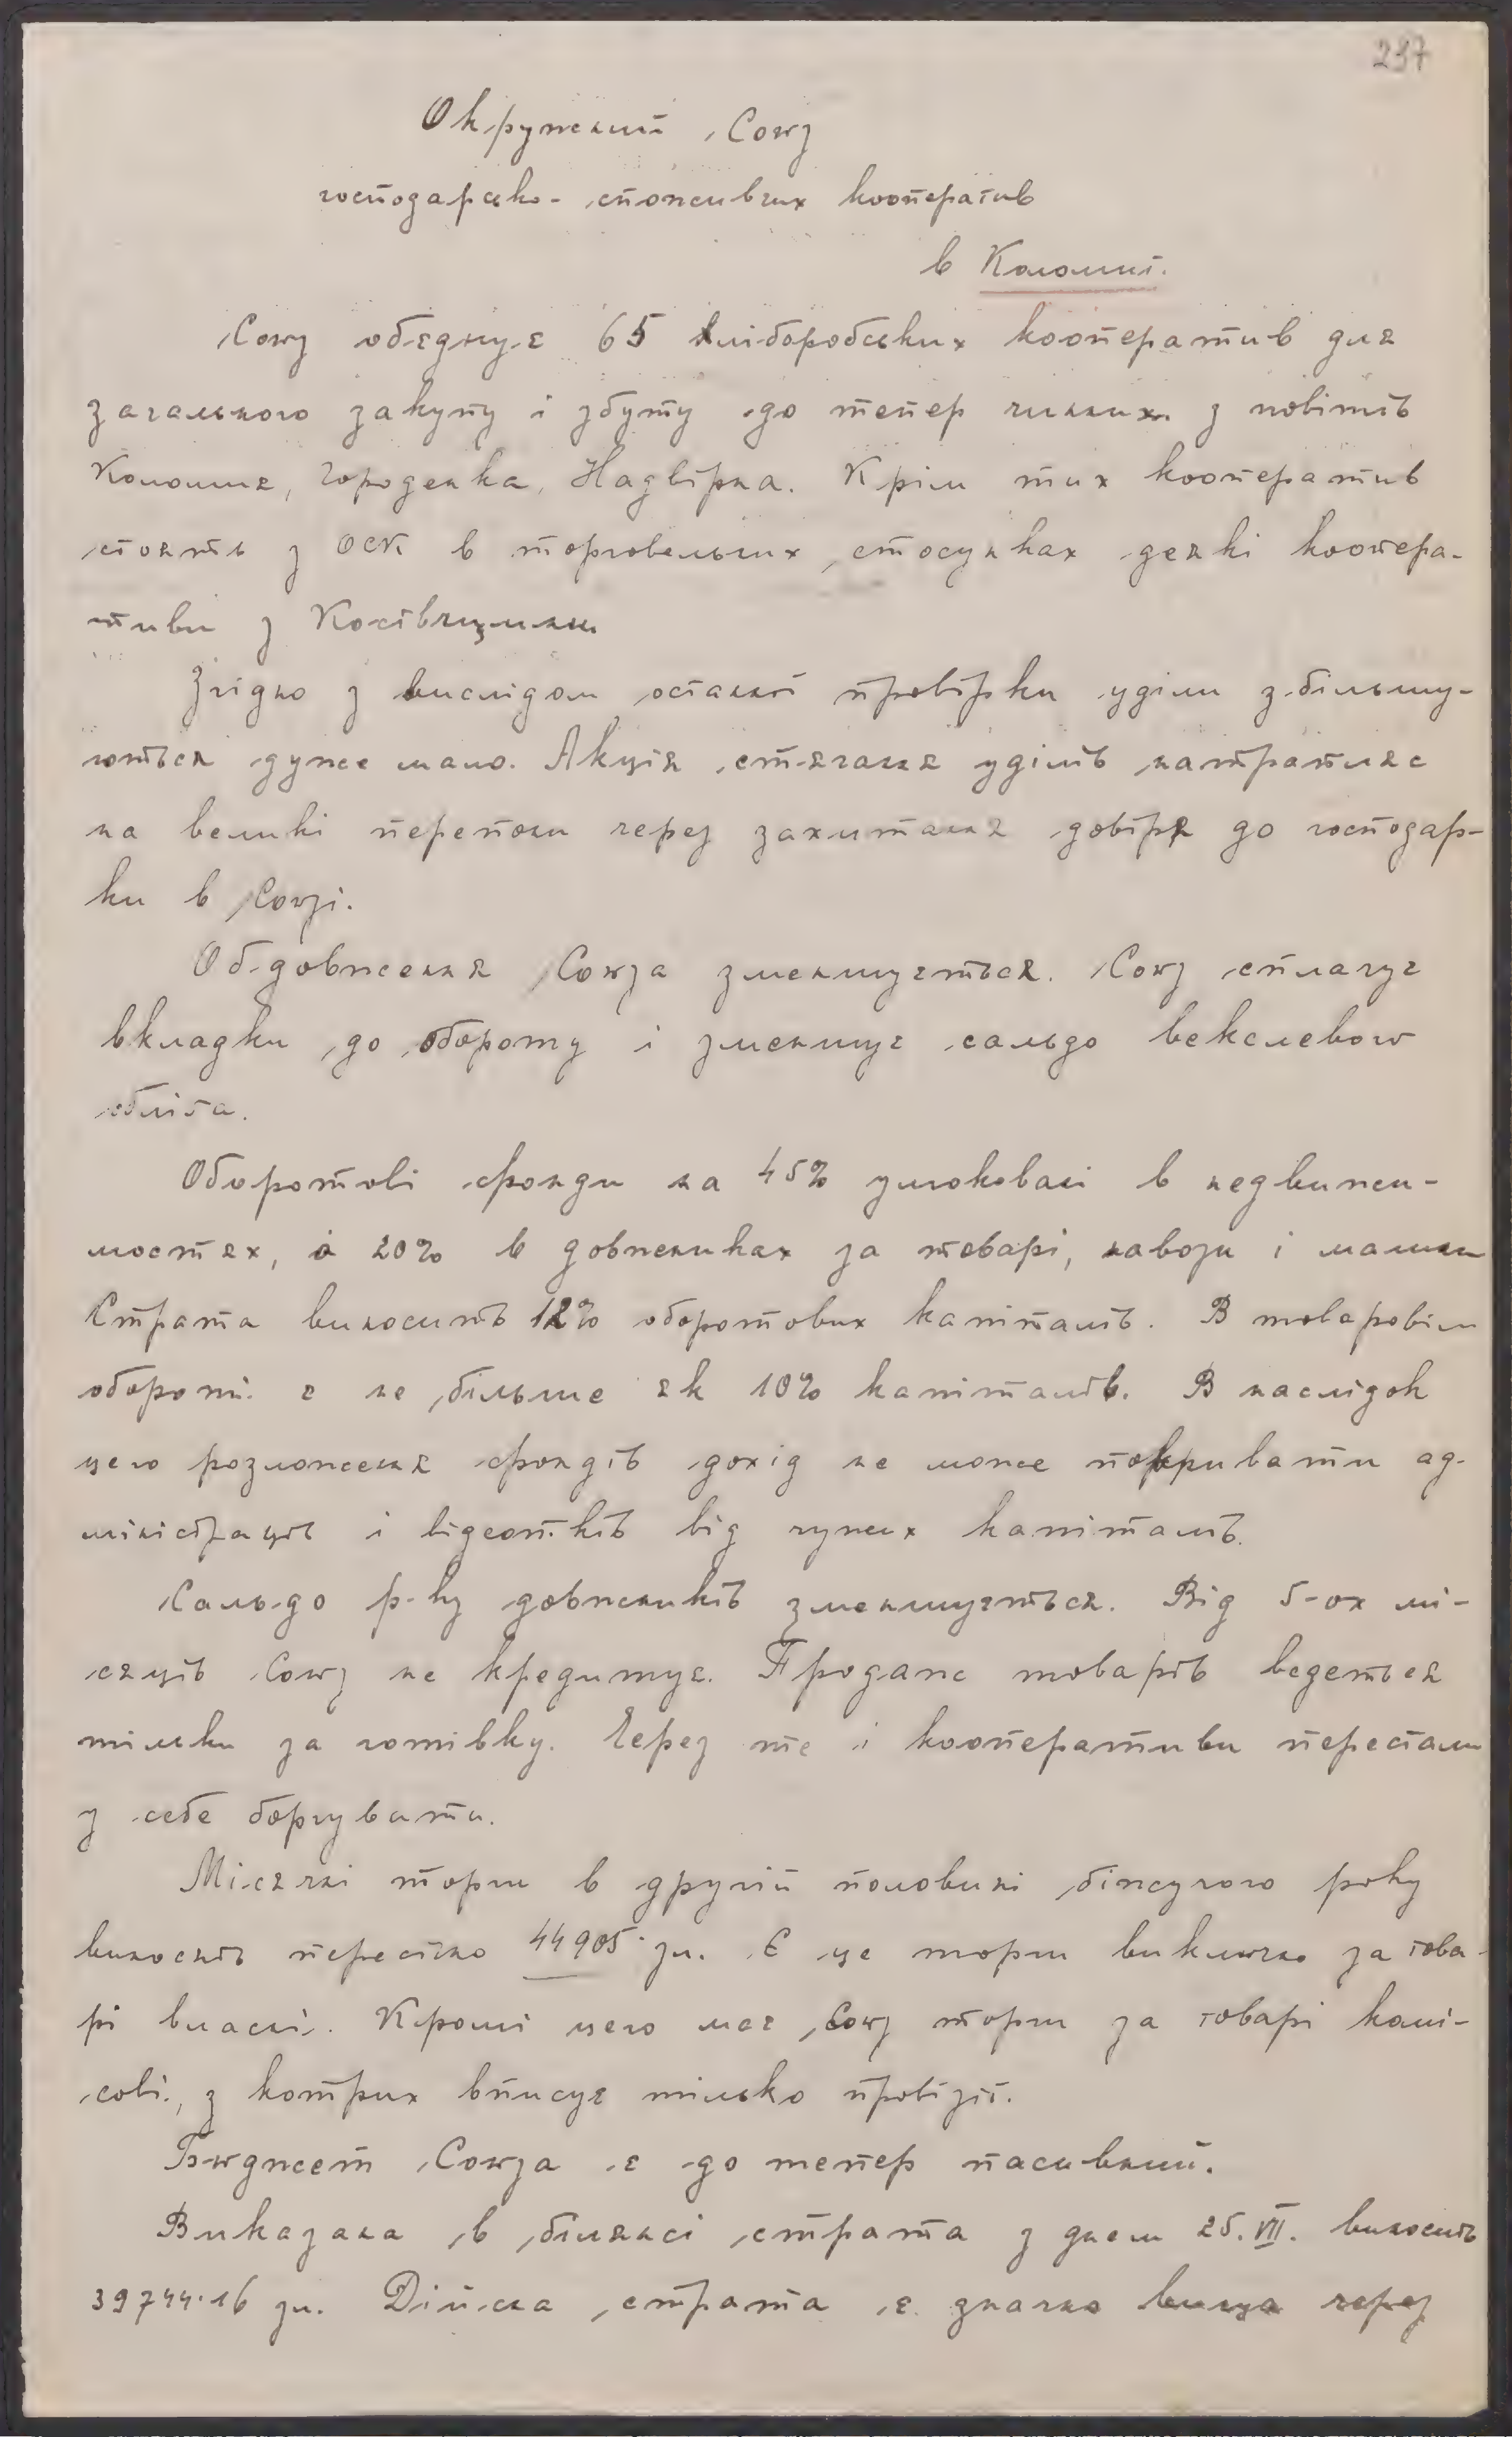 237
Окружний Союз
господарсько-споживчих кооператив
в Коломиї.
Союз обєднує 65 хліборобських кооператив для
загального закупу і збуту до тепер чинних з повітів
Коломия, Городенка, Надвірна. Крім тих кооператив
стоять з ОСК в торговельних стосунках деякі коопера-
тиви з Косівщини
Згідно з вислідом останої провірки уділи збільшу-
ються дуже мало. Акція стягання уділів натрапляє
на великі перепони через захитання довіря до господар-
ки в Союзі.
Обдовження Союза зменшується. Союз сплачує
вкладки до обороту і зменшує сальдо векслевого
обліґа.
Оборотові фонди на 45% умоковані в недвижи-
мостях, а 20% в довжниках за товарі, навози і машини
Страта виносить 12% оборотових капіталів. В товаровім
обороті є не більше як 10% капіталів. В наслідок
цего розложення фондів дохід не може покривати ад-
міністрації і відсотків від чужих капіталів.
Сальдо р-ку довжників зменшується. Від 5-ох мі-
сяців Союз не кредитує. Продаж товарів ведеться
тільки за готівку. Через те і кооперативи перестали
у себе боргувати.
Місячні торги в другій половині біжучого року
виносять пересічно 44905· зл. Є це торги виключно за това-
рі власні. Кромі цего має Союз торги за товарі комі-
сові, з котрих вписує тілько провізії.
Бюджет Союза є до тепер пасивний.
Виказана в білянсі страта з днем 25. VII. виносить
39744·16 зл. Дійсна страта є значно вища через